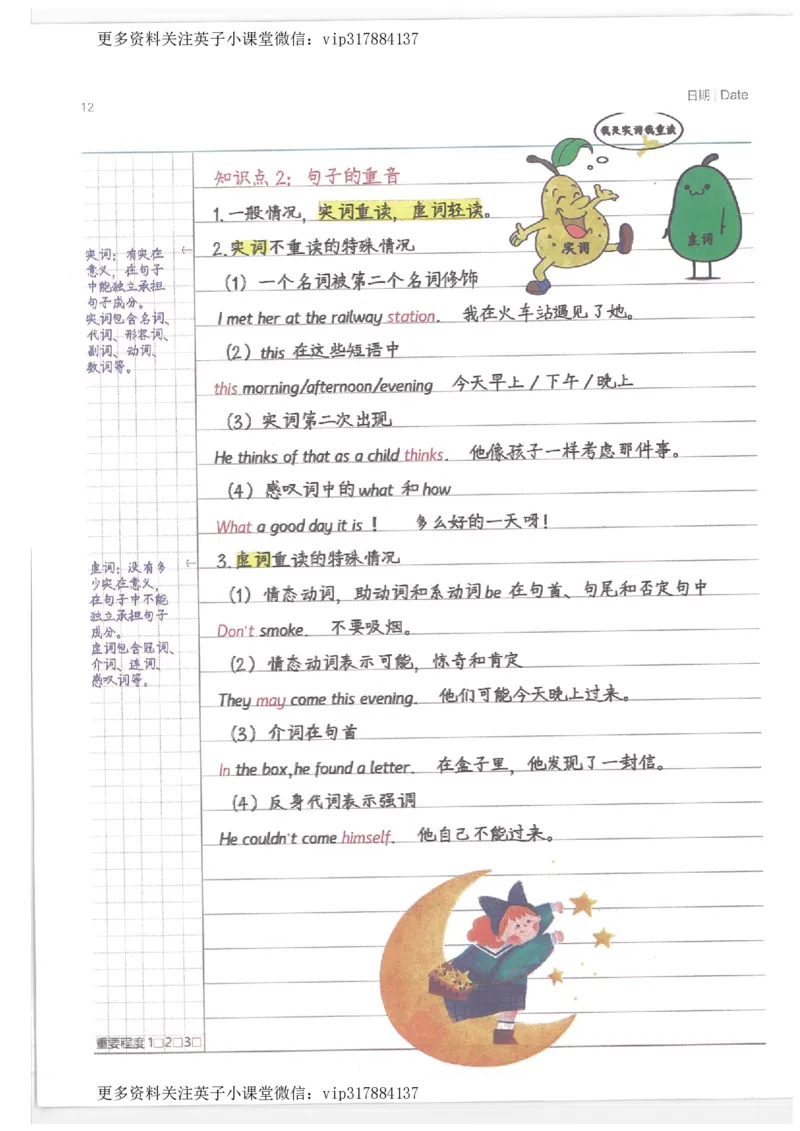 更多资料关注英子小课堂微信：vip317884137
日期 | Date
12
我是实词我重读
知识点 2：句子的重音
1.一般情况，实词重读，虚词轻读。
实词
虚词
实词：有实在
意义，在句子
中能独立承担
句子成分。
实词包含名词、
代词、形容词、
副词、动词、
数词等。
2.实词不重读的特殊情况
（1）一个名词被第二个名词修饰
I met her at the railway station. 我在火车站遇见了她。
（2）this 在这些短语中
this morning/afternoon/evening 今天早上/下午/晚上
（3）实词第二次出现
He thinks of that as a child thinks. 他像孩子一样考虑那件事。
（4）感叹词中的what 和how
What a good day it is！ 多么好的一天呀！
虚词：没有多
少实在意义，
在句子中不能
独立承担句子
成分。
虚词包含冠词、
介词、连词、
感叹词等。
3.虚词重读的特殊情况
（1）情态动词，助动词和系动词be 在句首、句尾和否定句中
Don't smoke. 不要吸烟。
（2）情态动词表示可能，惊奇和肯定
They may come this evening. 他们可能今天晚上过来。
（3）介词在句首
In the box,he found a letter. 在盒子里，他发现了一封信。
（4）反身代词表示强调
He couldn't come himself. 他自己不能过来。
重要程度 1□2□3□
更多资料关注英子小课堂微信：vip317884137